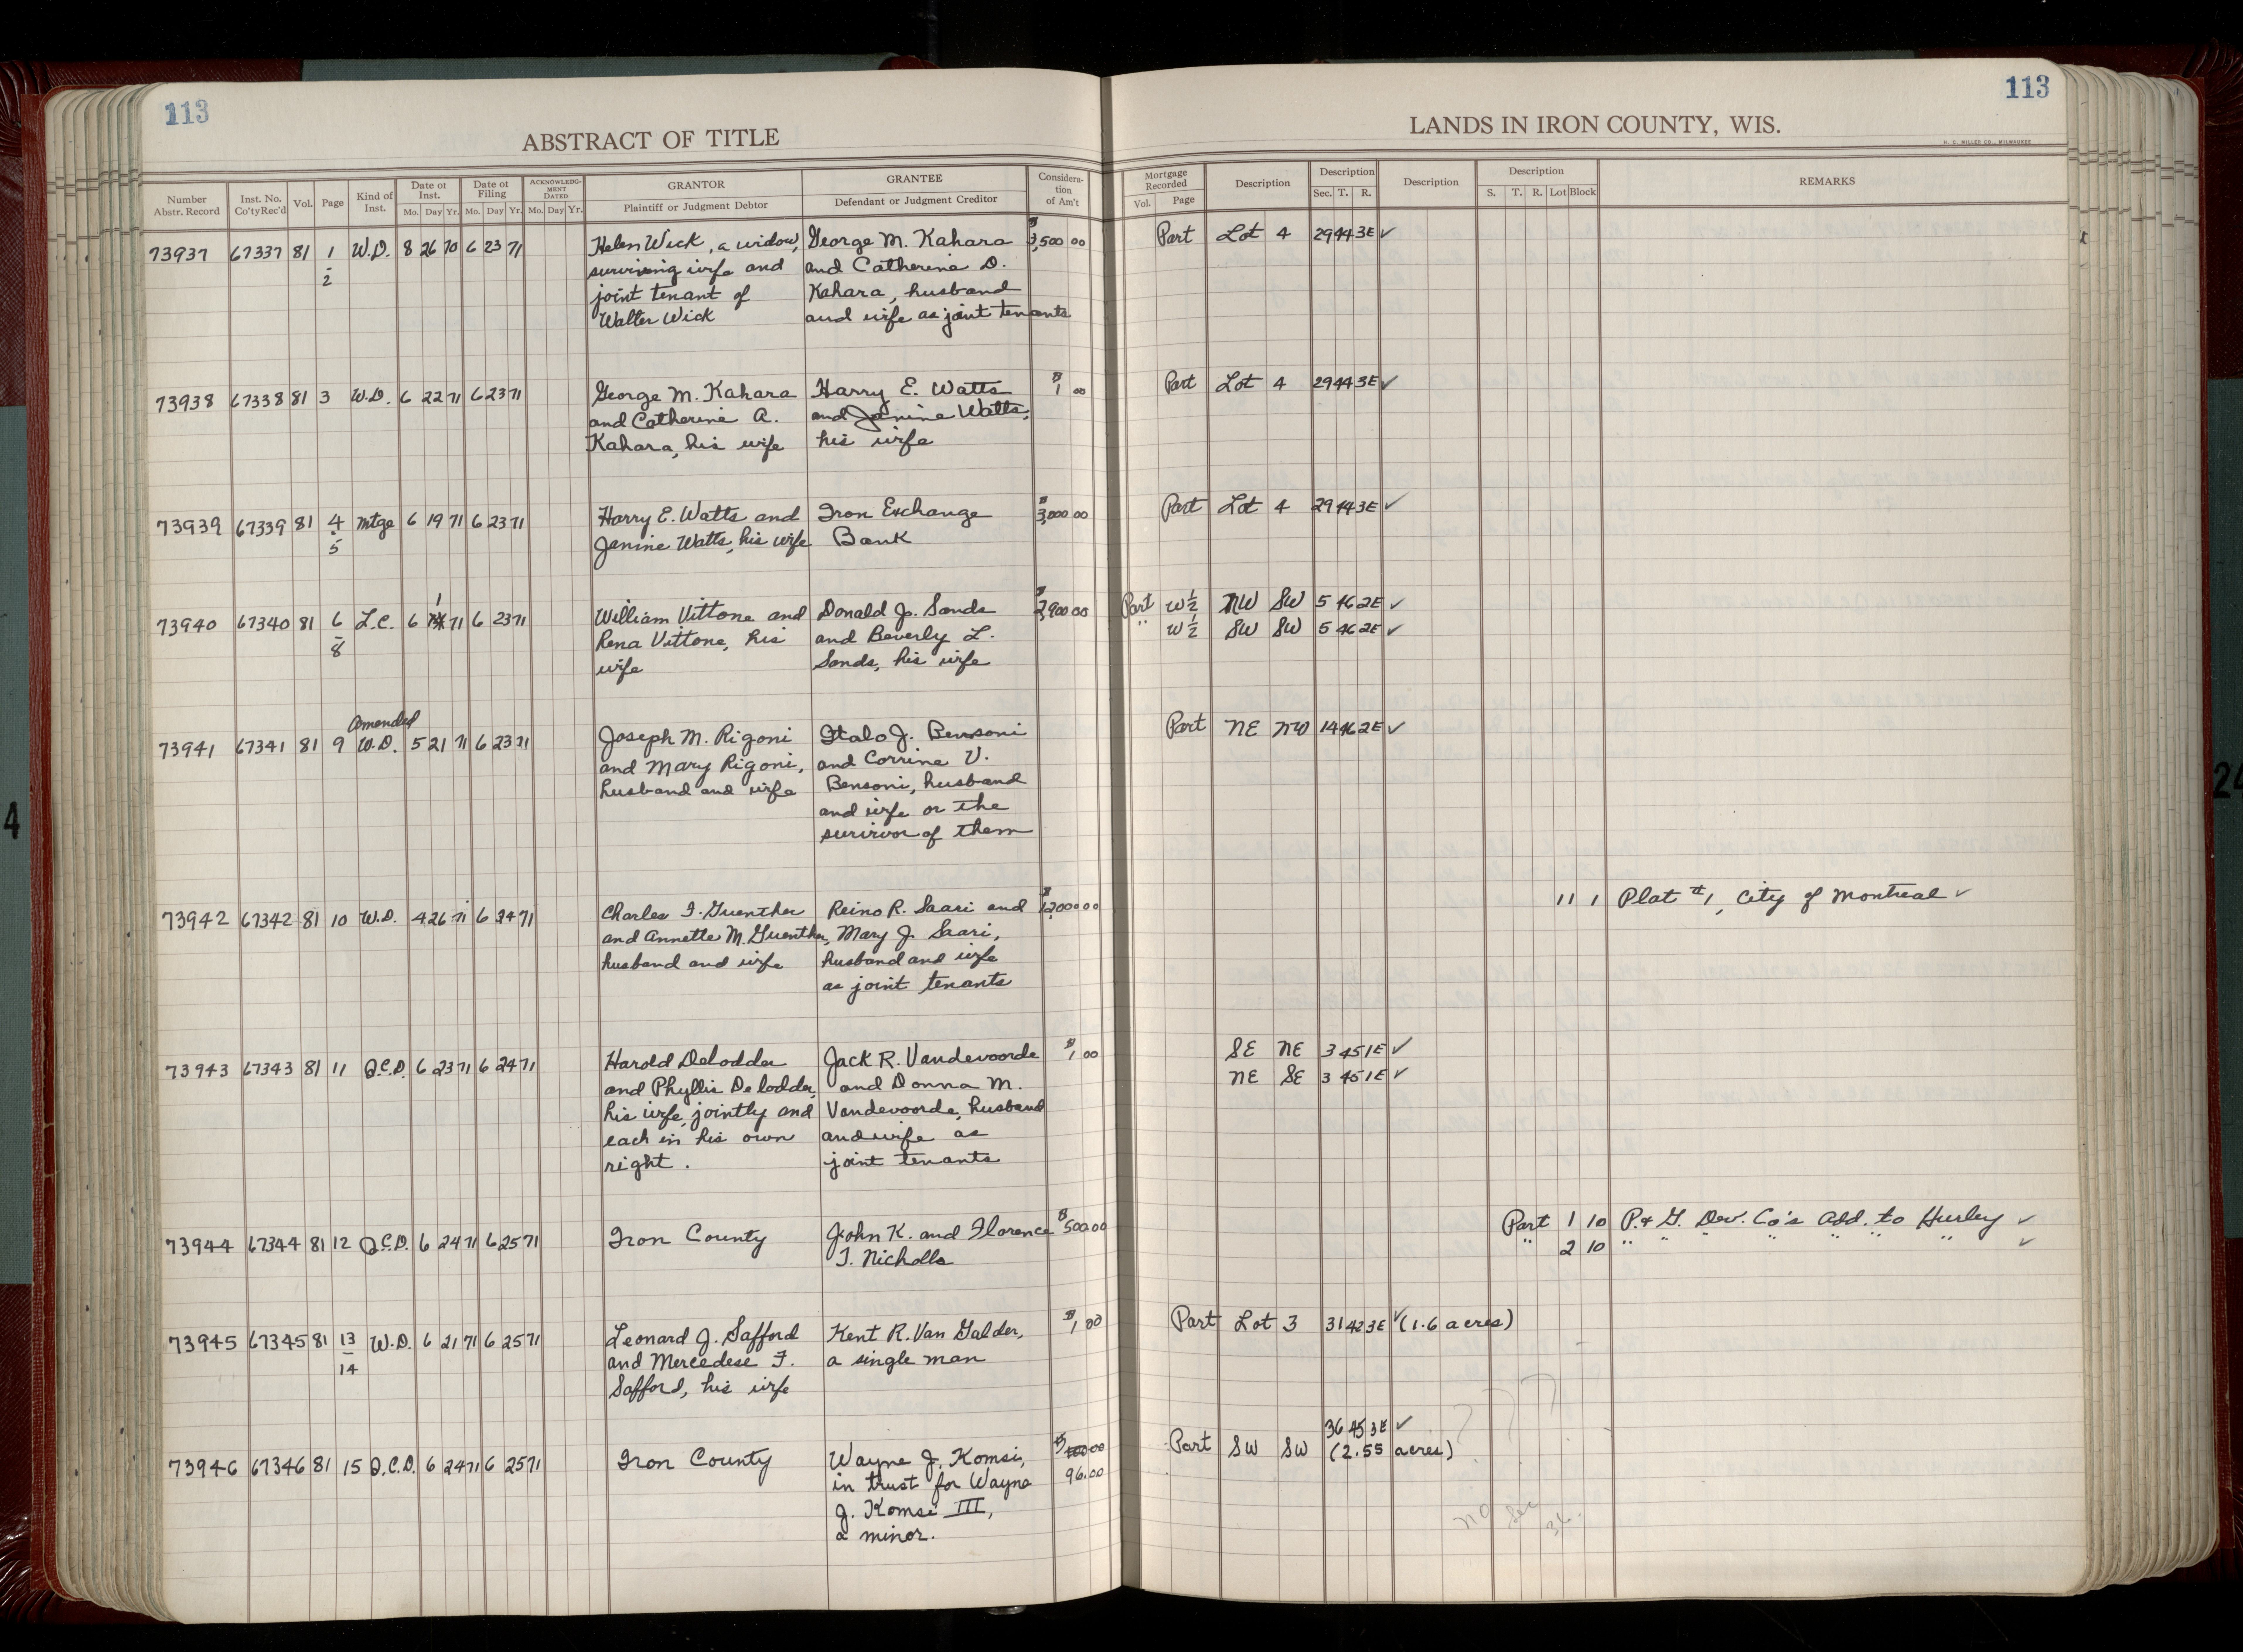 113
113
ABSTRACT OF TITLE
LANDS IN IRON COUNTY, WIS.
H. C. MILLER CO., MILWAUKEE
Number Abstr. Record
Inst. No. Co'ty Rec'd
Vol.
Page
Kind of Inst.
Date of Inst.
Mo. Day Yr.
Date of Filing
Mo. Day Yr.
ACKNOWLEDGMENT DATED
Mo. Day Yr.
GRANTOR
Plaintiff or Judgment Debtor
GRANTEE
Defendant or Judgment Creditor
Consideration of Am't
Mortgage Recorded
Vol. Page
Description
Description
Sec. T. R.
Description
Description
S. T. R. Lot Block
REMARKS
73937 67337 81 1 W.D. 8 26 70 6 23 71 Helen Wick, a widow, George M. Kahara $ 3,500 00 Part Lot 4 29 44 3E ✓
- surviving wife and and Catherine D.
2 joint tenant of Kahara, husband
Walter Wick and wife as joint tenants
73938 67338 81 3 W.D. 6 22 71 6 23 71 George M. Kahara Harry E. Watts $ 1 00 Part Lot 4 29 44 3E ✓
and Catherine A. and Janine Watts,
Kahara, his wife his wife
73939 67339 81 4 mtge 6 19 71 6 23 71 Harry E. Watts and Iron Exchange $ 3,000 00 Part Lot 4 29 44 3E ✓
- 5 Janine Watts, his wife Bank
73940 67340 81 6 L.C. 6 1 71 6 23 71 William Vittone and Donald J. Sands $ 2,900 00 Part W½ NW SW 5 46 2E ✓
- Rena Vittone, his and Beverly L. " W½ SW SW 5 46 2E ✓
8 wife Sands, his wife
Amended
73941 67341 81 9 W.D. 5 21 71 6 23 71 Joseph M. Rigoni Italo J. Bensoni Part NE NW 14 46 2E ✓
and Mary Rigoni, and Corrine V.
husband and wife Bensoni, husband
and wife or the
survivor of them
73942 67342 81 10 W.D. 4 26 71 6 24 71 Charles F. Guenther Reino R. Saari and $ 1,200 00 11 1 Plat #1, City of Montreal ✓
and Annette M. Guenther, Mary J. Saari,
husband and wife husband and wife
as joint tenants
73943 67343 81 11 Q.C.D. 6 23 71 6 24 71 Harold Delodder Jack R. Vandevoorde $ 1 00 SE NE 3 45 1E ✓
and Phyllis Delodder, and Donna M. NE SE 3 45 1E ✓
his wife, jointly and Vandevoorde, husband
each in his own and wife as
right. joint tenants
73944 67344 81 12 Q.C.D. 6 24 71 6 25 71 Iron County John K. and Florence $ 500 00 Part 1 10 P. & G. Dev. Co's Add. to Hurley ✓
T. Nicholls " 2 10 " " " " " " " ✓
73945 67345 81 13 W.D. 6 21 71 6 25 71 Leonard J. Safford Kent R. Van Galder, $ 1 00 Part Lot 3 31 42 3E ✓ (1.6 acres)
- and Mercedese F. a single man
14 Safford, his wife
36 45 3E ✓
73946 67346 81 15 Q.C.D. 6 24 71 6 25 71 Iron County Wayne J. Komsi, $ 100 00 Part SW SW (2.55 acres)
in trust for Wayne 96.00
J. Komsi III,
a minor.
? ? ?
no Sec 36.